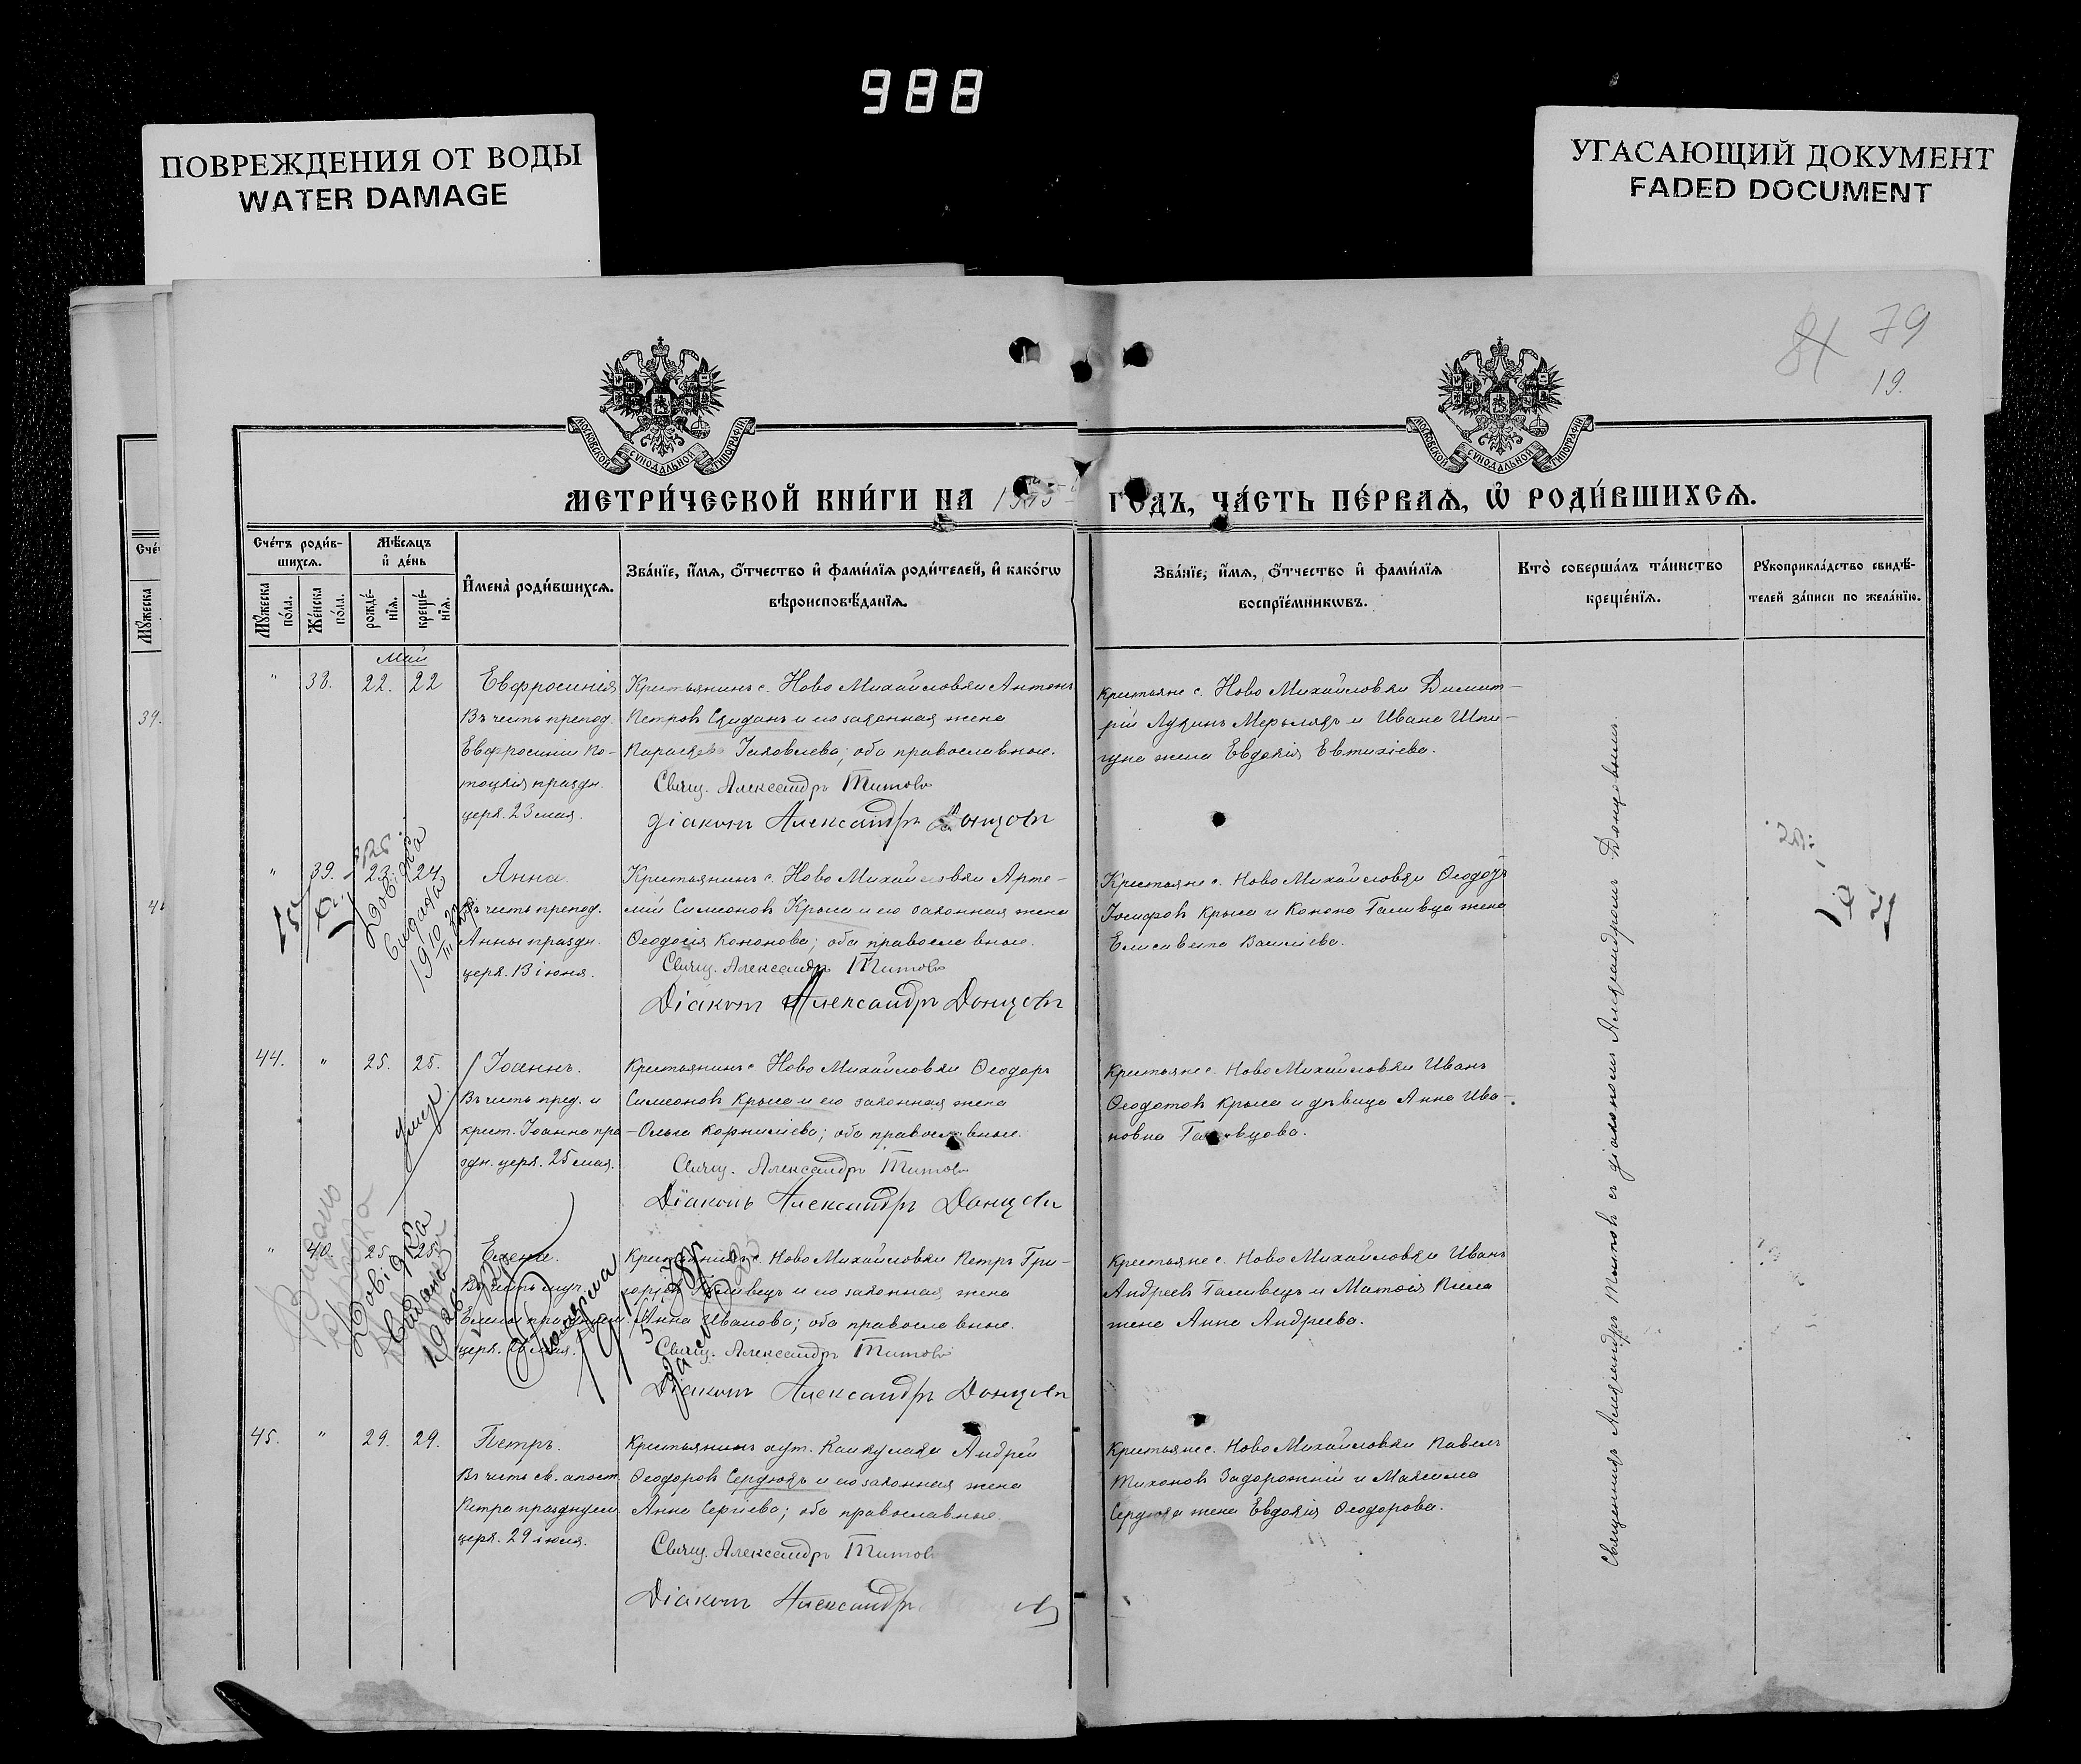 988
ПОВРЕЖДЕНИЯ ОТ ВОДЫ
WATER DAMAGE
УГАСАЮЩИЙ ДОКУМЕНТ
FADED DOCUMENT
81 79
19.
МОСКОВСКОЙ СѴНОДАЛЬНОЙ ТИПОГРАФІИ
МОСКОВСКОЙ СѴНОДАЛЬНОЙ ТИПОГРАФІИ
МЕТРИ́ЧЕСКОЙ КНИ́ГИ НА
ГОДЪ, ЧА́СТЬ ПЕ́РВАѦ, Ѡ҆ РОДИ́ВШИХСѦ.
Сче́тъ роди́в-
шихсѧ.
Мꙋ́жеска по́ла.
Же́нска по́ла.
Мѣ́сѧцъ и҆ де́нь
рожде́-нїѧ.
креще́-нїѧ.
И҆мена̀ роди́вшихсѧ.
Зва́нїе, и҆́мѧ, ѻ҆́тчество и҆ фами́лїѧ роди́телей, и҆ како́гѡ
вѣроисповѣ́данїѧ.
Зва́нїе, и҆́мѧ, ѻ҆́тчество и҆ фами́лїѧ
воспрїе́мникѡвъ.
Кто̀ соверша́лъ та́инство
креще́нїѧ.
Рꙋкоприкла́дство свидѣ́-
телей за́писи по жела́нїю.
Май
" 38. 22. 22
Евфросинія
Въ честь препод.
Евфросиніи По-
лоцкія праздн.
церк. 23 мая.
Крестьянинъ с. Ново Михайловки Антонъ
Петровъ и его законная жена
Параскева Іаковлева; оба православные.
Свящ. Александръ Титовъ
Діаконъ Александръ Донцовъ
Крестьяне с. Ново Михайловки Димит-
рій Лукинъ и Ивана Шпи-
гуна жена Евдокія Евтихіева.
" 39. 23. 24
Анна
Въ честь препод.
Анны праздн.
церк. 13 іюня.
Довідка
видана
Крестьянинъ с. Ново Михайловки Арте-
мій Симеоновъ Крыса и его законная жена
Ѳеодосія Кононова; оба православные.
Свящ. Александръ Титовъ
Діаконъ Александръ Донцовъ
Крестьяне с. Ново Михайловки Ѳеодоръ
Іосифовъ Крыса и Конона Галивца жена
Елисавета Василіева.
44. " 25. 25.
Іоаннъ.
Въ честь пред. и
крест. Іоанна пра-
здн. церк. 25 мая.
умеръ
Крестьянинъ с. Ново Михайловки Ѳеодоръ
Симеоновъ Крыса и его законная жена
Ольга Корниліева; оба православные.
Свящ. Александръ Титовъ
Діаконъ Александръ Донцовъ
Крестьяне с. Ново Михайловки Иванъ
Ѳеодотовъ Крыса и дѣвица Анна Ива-
новна
" 40. 25. 25
Елена.
Въ честь муч.
Елены
церк. 26 мая.
Довідка
видана
Крестьянинъ с. Ново Михайловки Петръ Гри-
горіевъ Галивецъ и его законная жена
Анна Иванова; оба православные.
Свящ. Александръ Титовъ
Діаконъ Александръ Донцовъ
Крестьяне с. Ново Михайловки Иванъ
Андреевъ Галивецъ и
жена Анна Андреева.
45. " 29. 29.
Петръ.
Въ честь св. апост.
Петра празднуем.
церк. 29 іюня.
Крестьянинъ хут. Андрей
Ѳеодоровъ Сердюкъ и его законная жена
Анна Сергіева; оба православные.
Свящ. Александръ Титовъ
Діаконъ Александръ
Крестьяне с. Ново Михайловки Павелъ
Тихоновъ Задорожній и Максима
Сердюка жена Евдокія Ѳеодорова.
Священникъ Александръ Титовъ съ діакономъ Александромъ Донцовымъ.